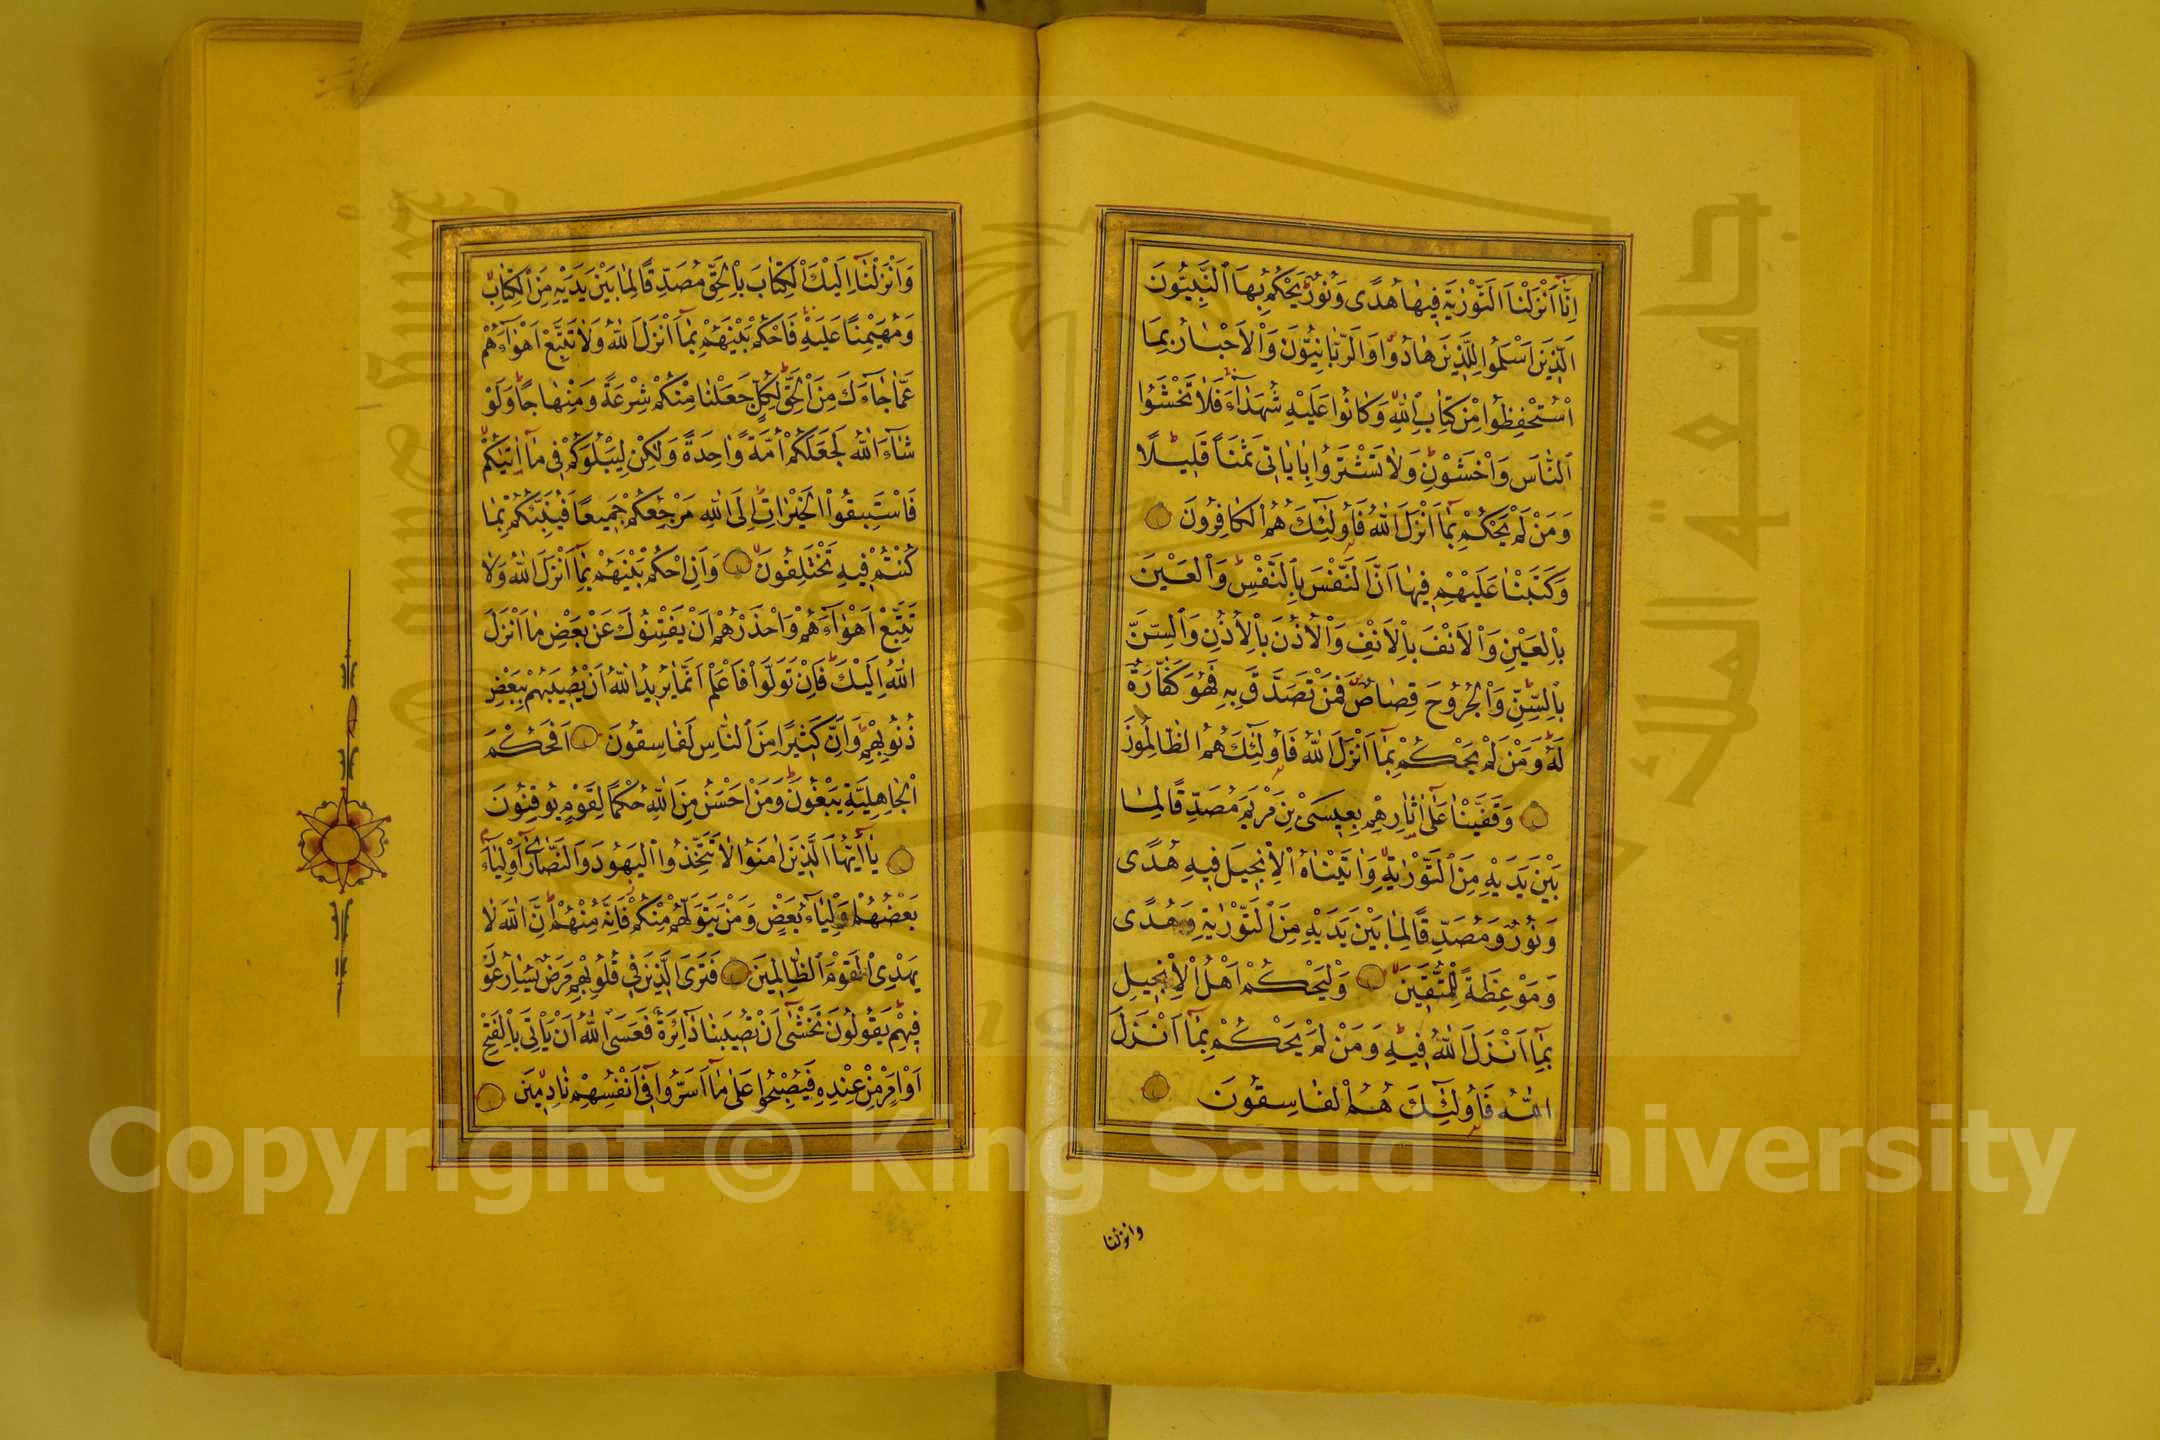 اِنَّٓا اَنْزَلْنَا التَّوْرٰيةَ فِيهَا هُدًى وَنُورٌ يَحْكُمُ بِهَا النَّبِيُّونَ
الَّذِينَ اَسْلَمُوا لِلَّذِينَ هَادُوا وَالرَّبَّانِيُّونَ وَالْاَحْبَارُ بِمَا
اسْتُحْفِظُوا مِنْ كِتَابِ اللّٰهِ وَكَانُوا عَلَيْهِ شُهَدَٓاءَ فَلَا تَخْشَوُا
النَّاسَ وَاخْشَوْنِ وَلَا تَشْتَرُوا بِاٰيَاتِي ثَمَنًا قَلِيلًا
وَمَنْ لَمْ يَحْكُمْ بِمَٓا اَنْزَلَ اللّٰهُ فَاُولٰٓئِكَ هُمُ الْكَافِرُونَ
وَكَتَبْنَا عَلَيْهِمْ فِيهَا اَنَّ النَّفْسَ بِالنَّفْسِ وَالْعَيْنَ
بِالْعَيْنِ وَالْاَنْفَ بِالْاَنْفِ وَالْاُذُنَ بِالْاُذُنِ وَالسِّنَّ
بِالسِّنِّ وَالْجُرُوحَ قِصَاصٌ فَمَنْ تَصَدَّقَ بِهِ فَهُوَ كَفَّارَةٌ
لَهُ وَمَنْ لَمْ يَحْكُمْ بِمَٓا اَنْزَلَ اللّٰهُ فَاُولٰٓئِكَ هُمُ الظَّالِمُونَ
وَقَفَّيْنَا عَلٰٓى اٰثَارِهِمْ بِعِيسَى بْنِ مَرْيَمَ مُصَدِّقًا لِمَا
بَيْنَ يَدَيْهِ مِنَ التَّوْرٰيةِ وَاٰتَيْنَاهُ الْاِنْجِيلَ فِيهِ هُدًى
وَنُورٌ وَمُصَدِّقًا لِمَا بَيْنَ يَدَيْهِ مِنَ التَّوْرٰيةِ وَهُدًى
وَمَوْعِظَةً لِلْمُتَّقِينَ وَلْيَحْكُمْ اَهْلُ الْاِنْجِيلِ
بِمَٓا اَنْزَلَ اللّٰهُ فِيهِ وَمَنْ لَمْ يَحْكُمْ بِمَٓا اَنْزَلَ
اللّٰهُ فَاُولٰٓئِكَ هُمُ الْفَاسِقُونَ
وانزلنا
وَاَنْزَلْنَٓا اِلَيْكَ الْكِتَابَ بِالْحَقِّ مُصَدِّقًا لِمَا بَيْنَ يَدَيْهِ مِنَ الْكِتَابِ
وَمُهَيْمِنًا عَلَيْهِ فَاحْكُمْ بَيْنَهُمْ بِمَٓا اَنْزَلَ اللّٰهُ وَلَا تَتَّبِعْ اَهْوَٓاءَهُمْ
عَمَّا جَٓاءَكَ مِنَ الْحَقِّ لِكُلٍّ جَعَلْنَا مِنْكُمْ شِرْعَةً وَمِنْهَاجًا وَلَوْ
شَٓاءَ اللّٰهُ لَجَعَلَكُمْ اُمَّةً وَاحِدَةً وَلٰكِنْ لِيَبْلُوَكُمْ فِي مَٓا اٰتٰيكُمْ
فَاسْتَبِقُوا الْخَيْرَاتِ اِلَى اللّٰهِ مَرْجِعُكُمْ جَمِيعًا فَيُنَبِّئُكُمْ بِمَا
كُنْتُمْ فِيهِ تَخْتَلِفُونَ وَاَنِ احْكُمْ بَيْنَهُمْ بِمَٓا اَنْزَلَ اللّٰهُ وَلَا
تَتَّبِعْ اَهْوَٓاءَهُمْ وَاحْذَرْهُمْ اَنْ يَفْتِنُوكَ عَنْ بَعْضِ مَا اَنْزَلَ
اللّٰهُ اِلَيْكَ فَاِنْ تَوَلَّوْا فَاعْلَمْ اَنَّمَا يُرِيدُ اللّٰهُ اَنْ يُصِيبَهُمْ بِبَعْضِ
ذُنُوبِهِمْ وَاِنَّ كَثِيرًا مِنَ النَّاسِ لَفَاسِقُونَ اَفَحُكْمَ
الْجَاهِلِيَّةِ يَبْغُونَ وَمَنْ اَحْسَنُ مِنَ اللّٰهِ حُكْمًا لِقَوْمٍ يُوقِنُونَ
يَٓا اَيُّهَا الَّذِينَ اٰمَنُوا لَا تَتَّخِذُوا الْيَهُودَ وَالنَّصَارٰٓى اَوْلِيَٓاءَ
بَعْضُهُمْ اَوْلِيَٓاءُ بَعْضٍ وَمَنْ يَتَوَلَّهُمْ مِنْكُمْ فَاِنَّهُ مِنْهُمْ اِنَّ اللّٰهَ لَا
يَهْدِي الْقَوْمَ الظَّالِمِينَ فَتَرَى الَّذِينَ فِي قُلُوبِهِمْ مَرَضٌ يُسَارِعُونَ
فِيهِمْ يَقُولُونَ نَخْشٰٓى اَنْ تُصِيبَنَا دَٓائِرَةٌ فَعَسَى اللّٰهُ اَنْ يَأْتِيَ بِالْفَتْحِ
اَوْ اَمْرٍ مِنْ عِنْدِهِ فَيُصْبِحُوا عَلٰى مَٓا اَسَرُّوا فِٓي اَنْفُسِهِمْ نَادِمِينَ
جامعة الملك سعود
King Saud University
Copyright © King Saud University